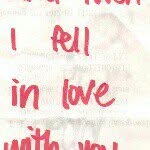 I fell
in love
with you